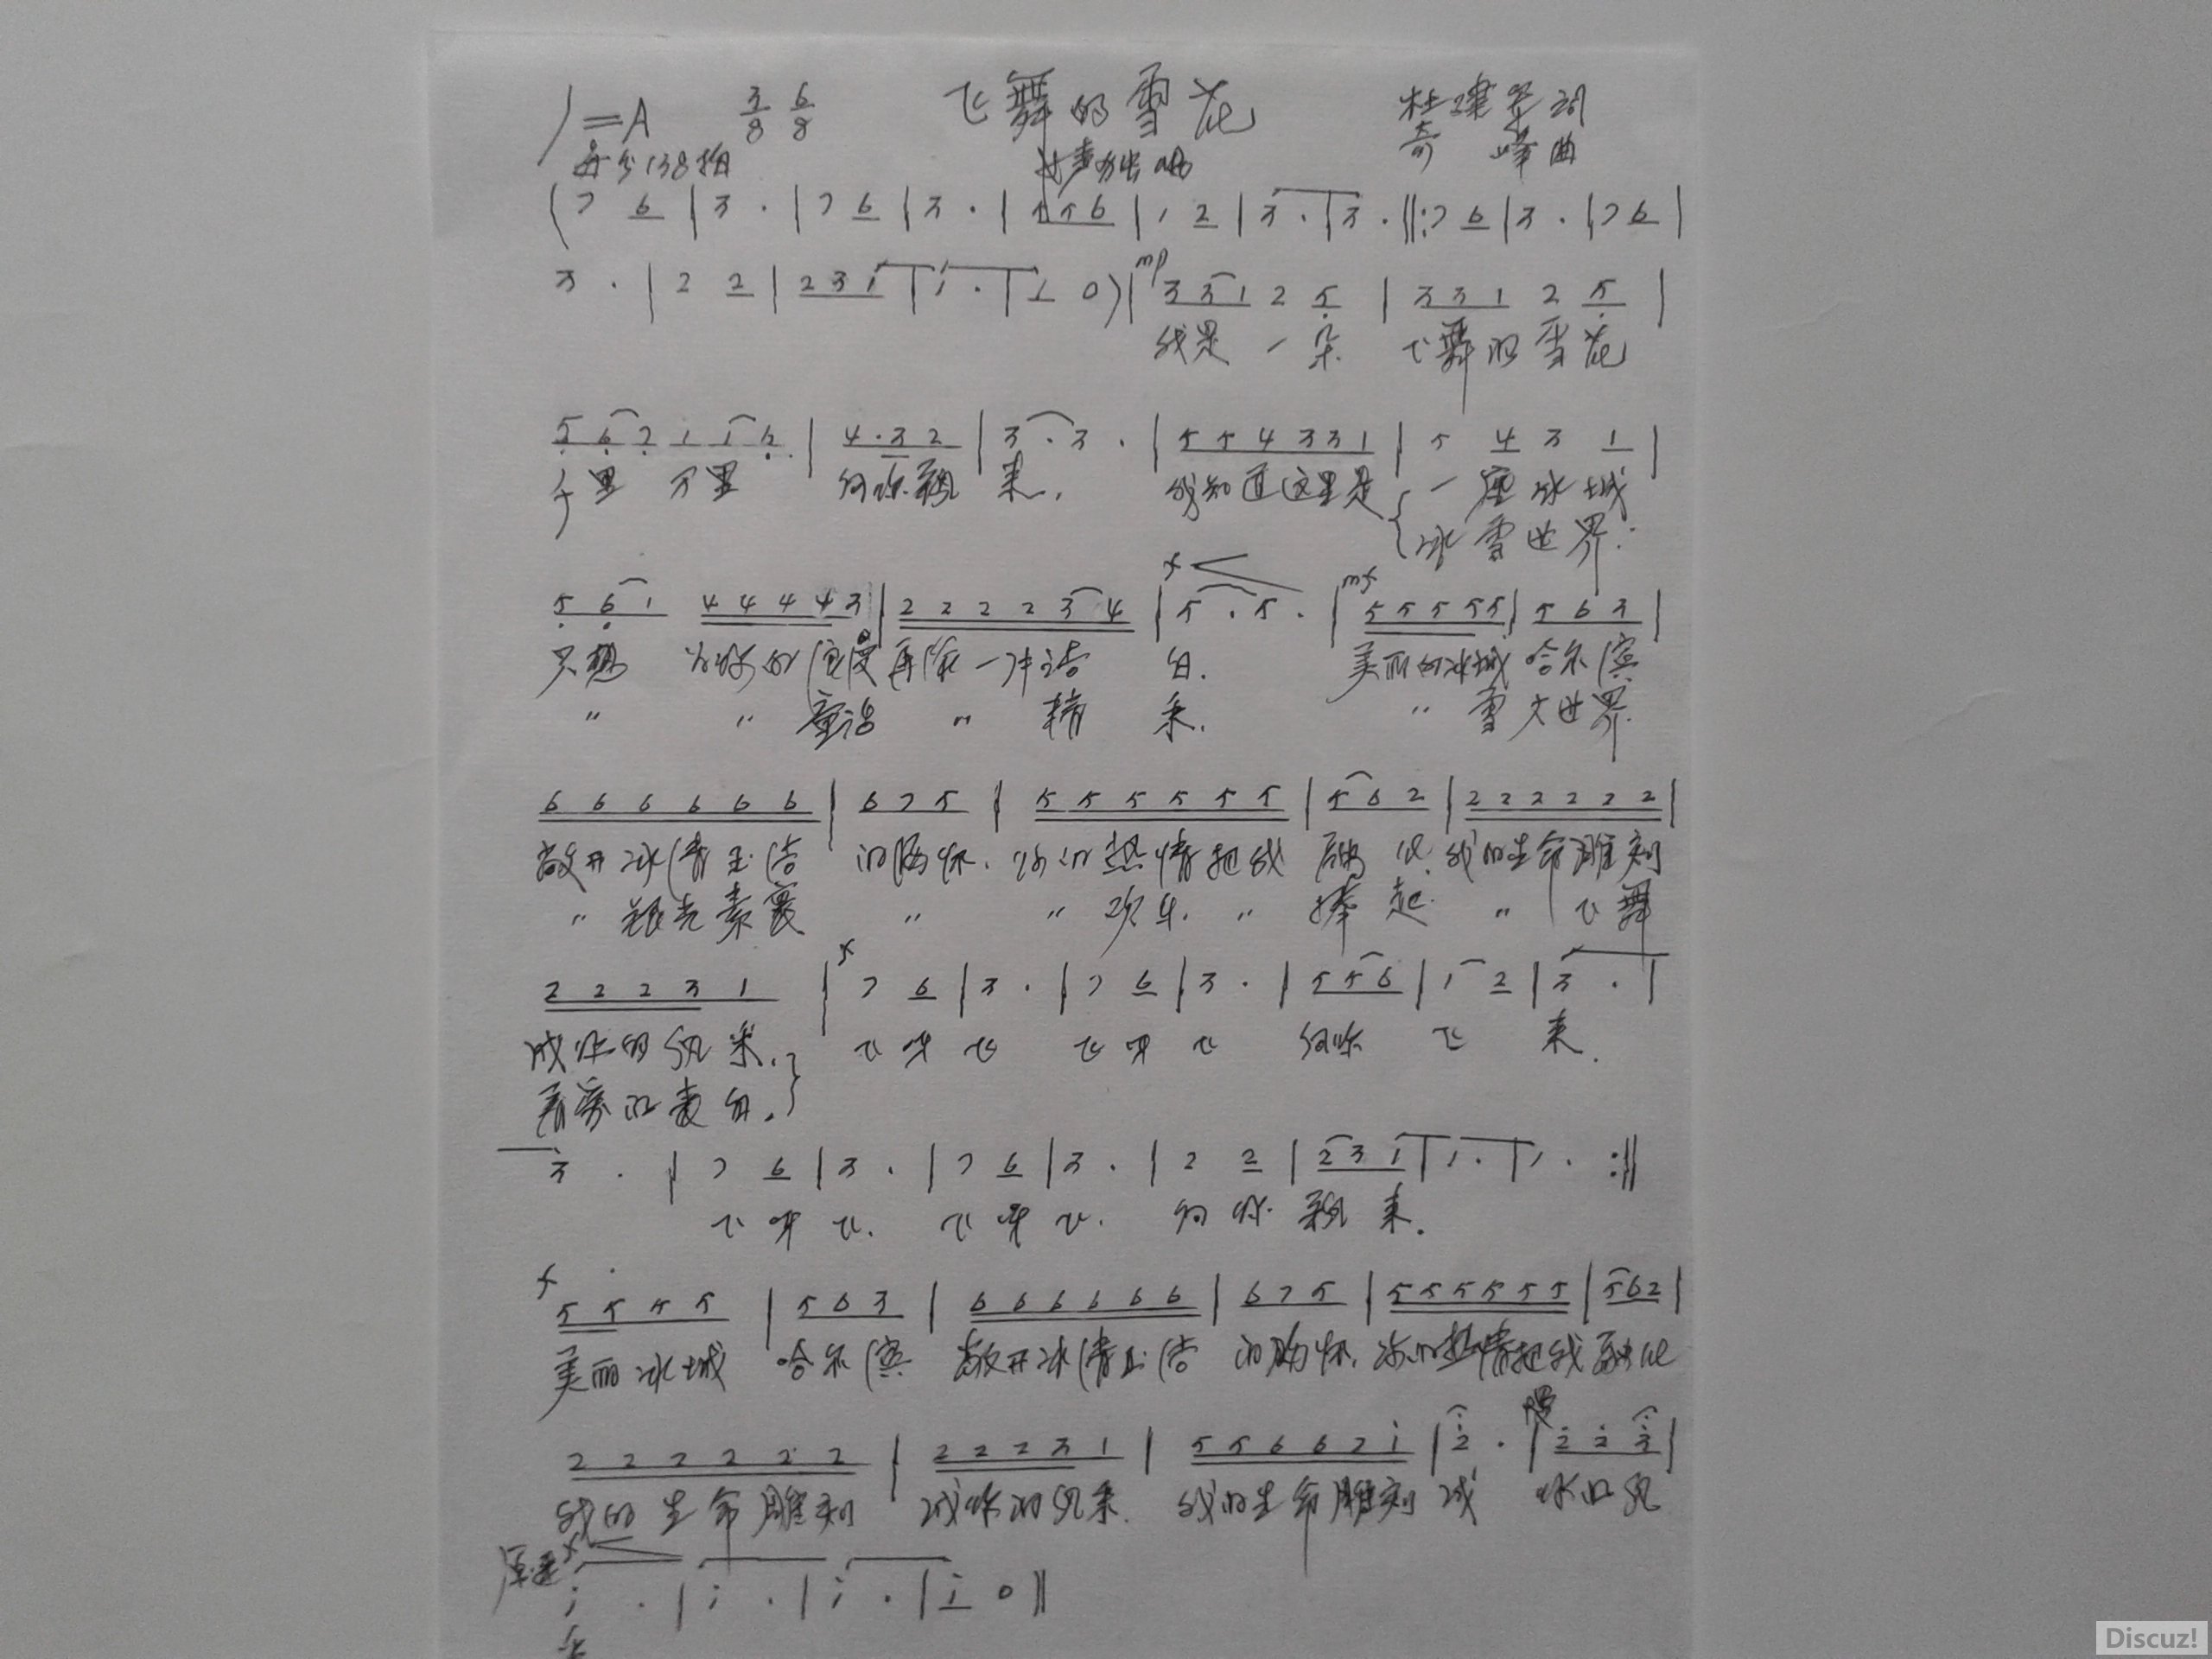 1=A 3/8 6/8 飞舞的雪花 词
每分138拍 奇峰曲
(7 6|3 ·|7 6|3 ·|5 5 6|1 2|3 ·|3 ·‖:7 6|3 ·|7 6|
3 ·|2 2|2 3 1|1 ·|1 0)|mp 3 3 1 2 5|3 3 1 2 5|
我是一朵 飞舞的雪花
5 6 7 1 1 6|4·3 2|3 · 3 ·|5 5 4 3 3 1|5 4 3 1|
千里 万里 向你飘 来. 我知道这里是 一座冰城
冰雪世界.
5 6 1 4 4 4 4 3|2 2 2 2 3 4|f 5 · 5 ·|mf 5 5 5 5 5|5 6 3|
只想 你的 再 一 洁 白. 美丽的冰城 哈尔滨
〃 〃 童话 〃 精 采. 〃 雪大世界.
6 6 6 6 6 6|6 7 5|5 5 5 5 5 5|5 6 2|2 2 2 2 2 2|
敞开冰清玉洁 的胸怀. 你的热情把我 融化. 我的生命雕刻
〃 银光素裹 〃 〃 欢乐. 〃 捧起. 〃 飞舞
2 2 2 3 1|f 7 6|3 ·|7 6|3 ·|5 5 6|1 2|3 ·|
成你的风采. 飞呀飞 飞呀飞 向你 飞 来.
的表白.
3 ·|7 6|3 ·|7 6|3 ·|2 2|2 3 1|1 ·|1 · :‖
飞呀飞. 飞呀飞. 向你飘来.
f 5 5 5 5|5 6 3|6 6 6 6 6 6|6 7 5|5 5 5 5 5 5|5 6 2|
美丽冰城 哈尔滨 敞开冰清玉洁 的胸怀. 你的热情把我融化
慢
2 2 2 2 2 2|2 2 2 3 1|5 5 6 6 7 i|2 ·|2 2 3|
我的生命雕刻 成你的风采. 我的生命雕刻 成 你的风
原速 f
i ·|i ·|i ·|i 0‖
采
Discuz!